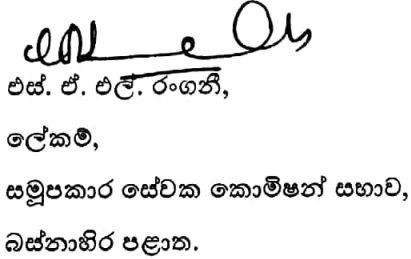 එස්. ඒ. එල්. රංගනී,
ලේකම්,
සමූපකාර සේවක කොමිෂන් සභාව,
බස්නාහිර පළාත.